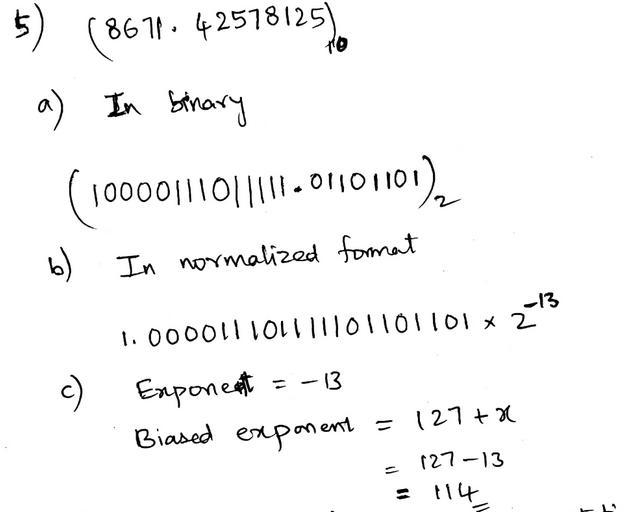 5) (8671. 42578125)10
a) In binary
(10000111011111.01101101)2
b) In normalized format
1.000011101111101101101 × 2^-13
c) Exponent = -13
Biased exponent = 127 + x
= 127-13
= 114